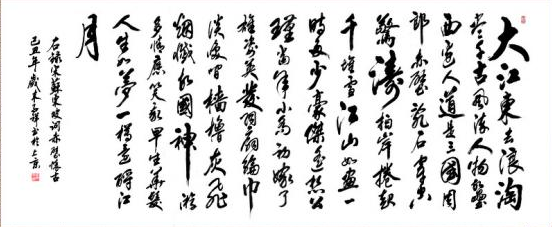 大江東去浪淘
盡千古風流人物故壘
西邊人道是三國周
郎赤壁亂石穿空
驚濤拍岸捲起
千堆雪江山如畫一
時多少豪傑遙想公
瑾當年小喬初嫁了
雄姿英發羽扇綸巾
談笑間檣櫓灰飛
煙滅故國神遊
多情應笑我早生華髮
人生如夢一樽還酹江
月
右錄宋蘇東坡詞赤壁懷古
己丑年歲末書於上京